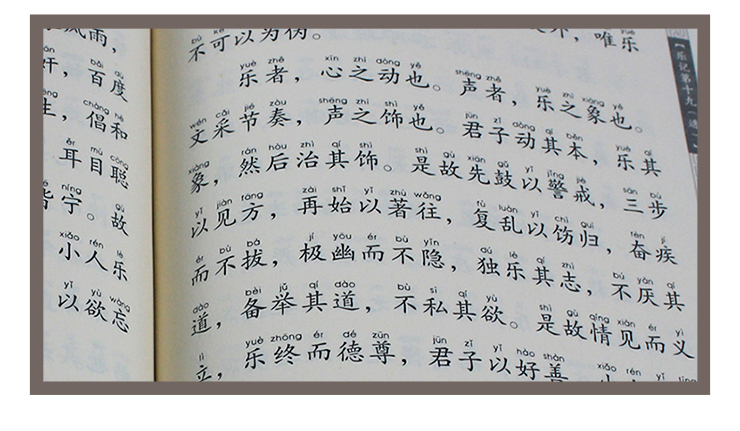 风雨，
bǎi dù
奸，百度
chàng hè
生，倡和
ěr mù cōng
耳目聪
níng gù
皆宁。故
xiǎo rén lè
小人乐
yǐ yù wàng
以欲忘
【乐记第十九（选）】
外，唯乐
不可以为伪。
yuè zhě xīn zhī dòng yě shēng zhě yuè zhī xiàng yě
乐者，心之动也。声者，乐之象也。
wén cǎi jié zòu shēng zhī shì yě jūn zǐ dòng qí běn yuè qí
文采节奏，声之饰也。君子动其本，乐其
xiàng rán hòu zhì qí shì shì gù xiān gǔ yǐ jǐng jiè sān bù
象，然后治其饰。是故先鼓以警戒，三步
yǐ jiàn fāng zài shǐ yǐ zhù wǎng fù luàn yǐ chì guī fèn jí
以见方，再始以著往，复乱以饬归，奋疾
ér bù bá jí yōu ér bù yǐn dú lè qí zhì bú yàn qí
而不拔，极幽而不隐，独乐其志，不厌其
dào bèi jǔ qí dào bù sī qí yù shì gù qíng xiàn ér yì
道，备举其道，不私其欲。是故情见而义
lì yuè zhōng ér dé zūn jūn zǐ yǐ hào shàn xiǎo rén yǐ
立，乐终而德尊，君子以好善，小人